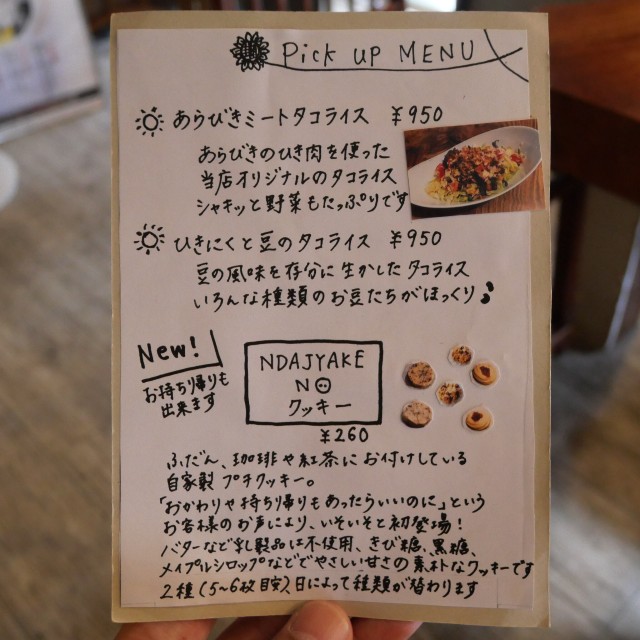 Pick UP MENU
あらびきミートタコライス ¥950
あらびきのひき肉を使った
当店オリジナルのタコライス
シャキッと野菜もたっぷりです
ひきにくと豆のタコライス ¥950
豆の風味を存分に生かしたタコライス
いろんな種類のお豆たちがほっくり♪
New!
お持ち帰りも
出来ます
NDAJYAKE
NO
クッキー
¥260
ふだん、珈琲や紅茶にお付けしている
自家製プチクッキー。
「おかわりや持ち帰りもあったらいいのに」という
お客様のお声により、いそいそと初登場!
バターなど乳製品は不使用、きび糖、黒糖、
メイプルシロップなどでやさしい甘さの素朴なクッキーです
2種(5~6枚目安)日によって種類が替わります